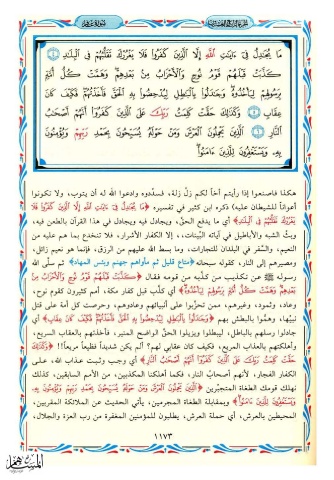 مَا يُجَٰدِلُ فِىٓ ءَايَٰتِ ٱللَّهِ إِلَّا ٱلَّذِينَ كَفَرُوا۟ فَلَا يَغْرُرْكَ تَقَلُّبُهُمْ فِى ٱلْبِلَٰدِ ٤
كَذَّبَتْ قَبْلَهُمْ قَوْمُ نُوحٍ وَٱلْأَحْزَابُ مِنۢ بَعْدِهِمْ وَهَمَّتْ كُلُّ أُمَّةٍ
بِرَسُولِهِمْ لِيَأْخُذُوهُ وَجَٰدَلُوا۟ بِٱلْبَٰطِلِ لِيُدْحِضُوا۟ بِهِ ٱلْحَقَّ فَأَخَذْتُهُمْ فَكَيْفَ كَانَ
عِقَابِ ٥ وَكَذَٰلِكَ حَقَّتْ كَلِمَتُ رَبِّكَ عَلَى ٱلَّذِينَ كَفَرُوٓا۟ أَنَّهُمْ أَصْحَٰبُ
ٱلنَّارِ ٦ ٱلَّذِينَ يَحْمِلُونَ ٱلْعَرْشَ وَمَنْ حَوْلَهُۥ يُسَبِّحُونَ بِحَمْدِ رَبِّهِمْ وَيُؤْمِنُونَ
بِهِۦ وَيَسْتَغْفِرُونَ لِلَّذِينَ ءَامَنُوا۟
هكذا فاصنعوا إذا رأيتم أخاً لكم زلَّ زلة، فسدّدوه وادعوا الله له أن يتوب، ولا تكونوا
أعواناً للشيطان عليه) ذكره ابن كثير في تفسيره. ﴿مَا يُجَادِلُ فِي آيَاتِ اللَّهِ إِلَّا الَّذِينَ كَفَرُوا فَلَا
يَغْرُرْكَ تَقَلُّبُهُمْ فِي الْبِلَادِ﴾ أي ما يدفع الحق، ويجادل فيه ويجادل في هذا القرآن بالطعن فيه،
وبثِّ الشبه والأباطيل في آياته البيّنات، إلا الكفار الأشرار، فلا تنخدع بما هم عليه من
النعيم، والسَّفر في البلدان للتجارات، وما بسط الله عليهم من الرزق، فإنما هو نعيم زائل،
ومصيرهم إلى النار، كقوله سبحانه ﴿متاع قليل ثم مأواهم جهنم وبئس المهاد﴾ ثم سلَّى الله
رسوله ﷺ عن تكذيب من كذَّبه من قومه فقال ﴿كَذَّبَتْ قَبْلَهُمْ قَوْمُ نُوحٍ وَالْأَحْزَابُ مِنْ
بَعْدِهِمْ وَهَمَّتْ كُلُّ أُمَّةٍ بِرَسُولِهِمْ لِيَأْخُذُوهُ﴾ أي كذَّب قبل كفار مكة، أمم كثيرون كقوم نوح،
وعاد، وثمود، وغيرهم، ممن تحزَّبوا على أنبيائهم وعادوهم، وحرصت كل أمة على قتل
نبيِّها، وهمُّوا بالبطش بهم ﴿وَجَادَلُوا بِالْبَاطِلِ لِيُدْحِضُوا بِهِ الْحَقَّ فَأَخَذْتُهُمْ فَكَيْفَ كَانَ عِقَابِ﴾ أي
جادلوا رسلهم بالباطل، ليبطلوا ويزيلوا الحقَّ الواضح المنير، فأخذتهم بالعقاب السريع،
وأهلكتهم بالعذاب المريع، فكيف كان عقابي لهم؟ ألم يكن شديداً فظيعاً مريعاً!! ﴿وَكَذَلِكَ
حَقَّتْ كَلِمَتُ رَبِّكَ عَلَى الَّذِينَ كَفَرُوا أَنَّهُمْ أَصْحَابُ النَّارِ﴾ أي وجب وثبت عذاب الله، على
الكفار الفجار، لأنهم أصحاب النار، فكما أهلكنا المكذبين، من الأمم السابقين، كذلك
نهلك قومك الطغاة المتجبّرين ﴿الَّذِينَ يَحْمِلُونَ الْعَرْشَ وَمَنْ حَوْلَهُ يُسَبِّحُونَ بِحَمْدِ رَبِّهِمْ وَيُؤْمِنُونَ بِهِ
وَيَسْتَغْفِرُونَ لِلَّذِينَ آمَنُوا﴾ وبمقابلة الطغاة المجرمين، يأتي الحديث عن الملائكة المقربين،
المحيطين بالعرش، أي حملة العرش، يطلبون للمؤمنين المغفرة من رب العزة والجلال،
١١٧٣